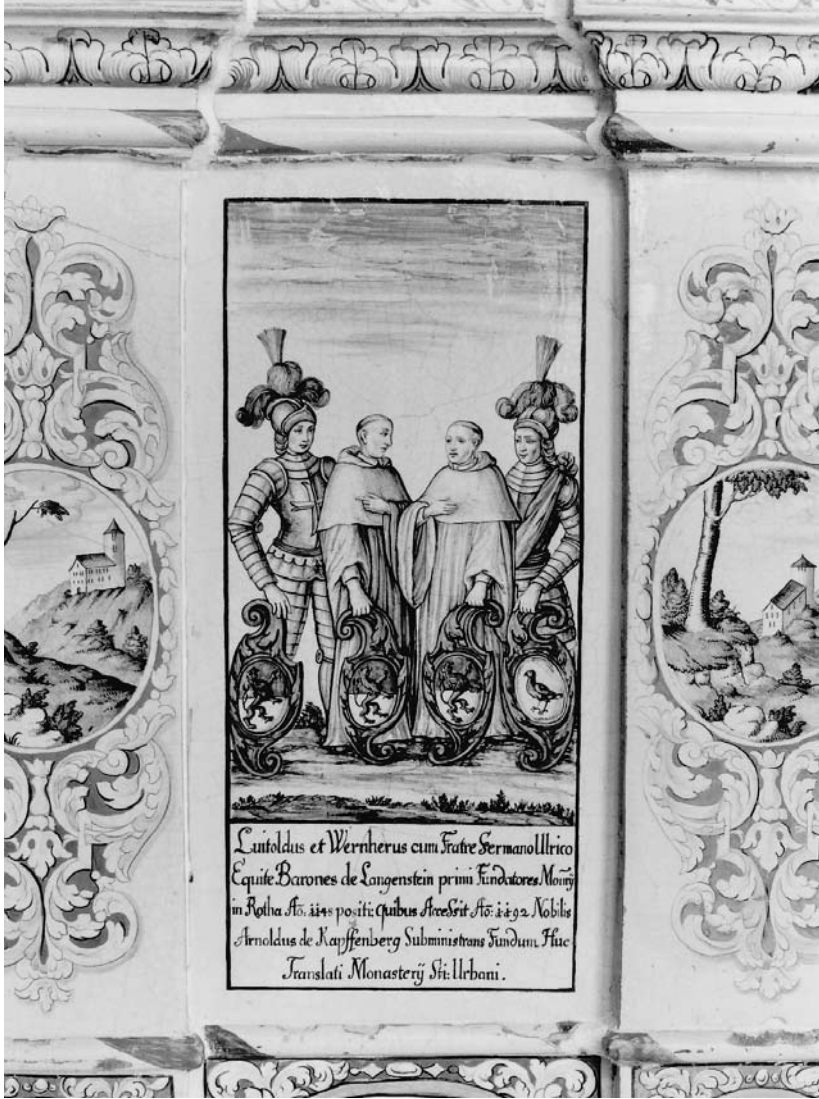 Luitoldus et Wernherus cum Fratre Germano Ulrico
Equite Barones de Langenstein primi Fundatores Monrÿ
in Rotha Aō: 1148 positi: quibus Accessit Aō: 1192 Nobilis
Arnoldus de Kapffenberg Subministrans Fundum Huc
Translati Monasterÿ Sti: Urbani.